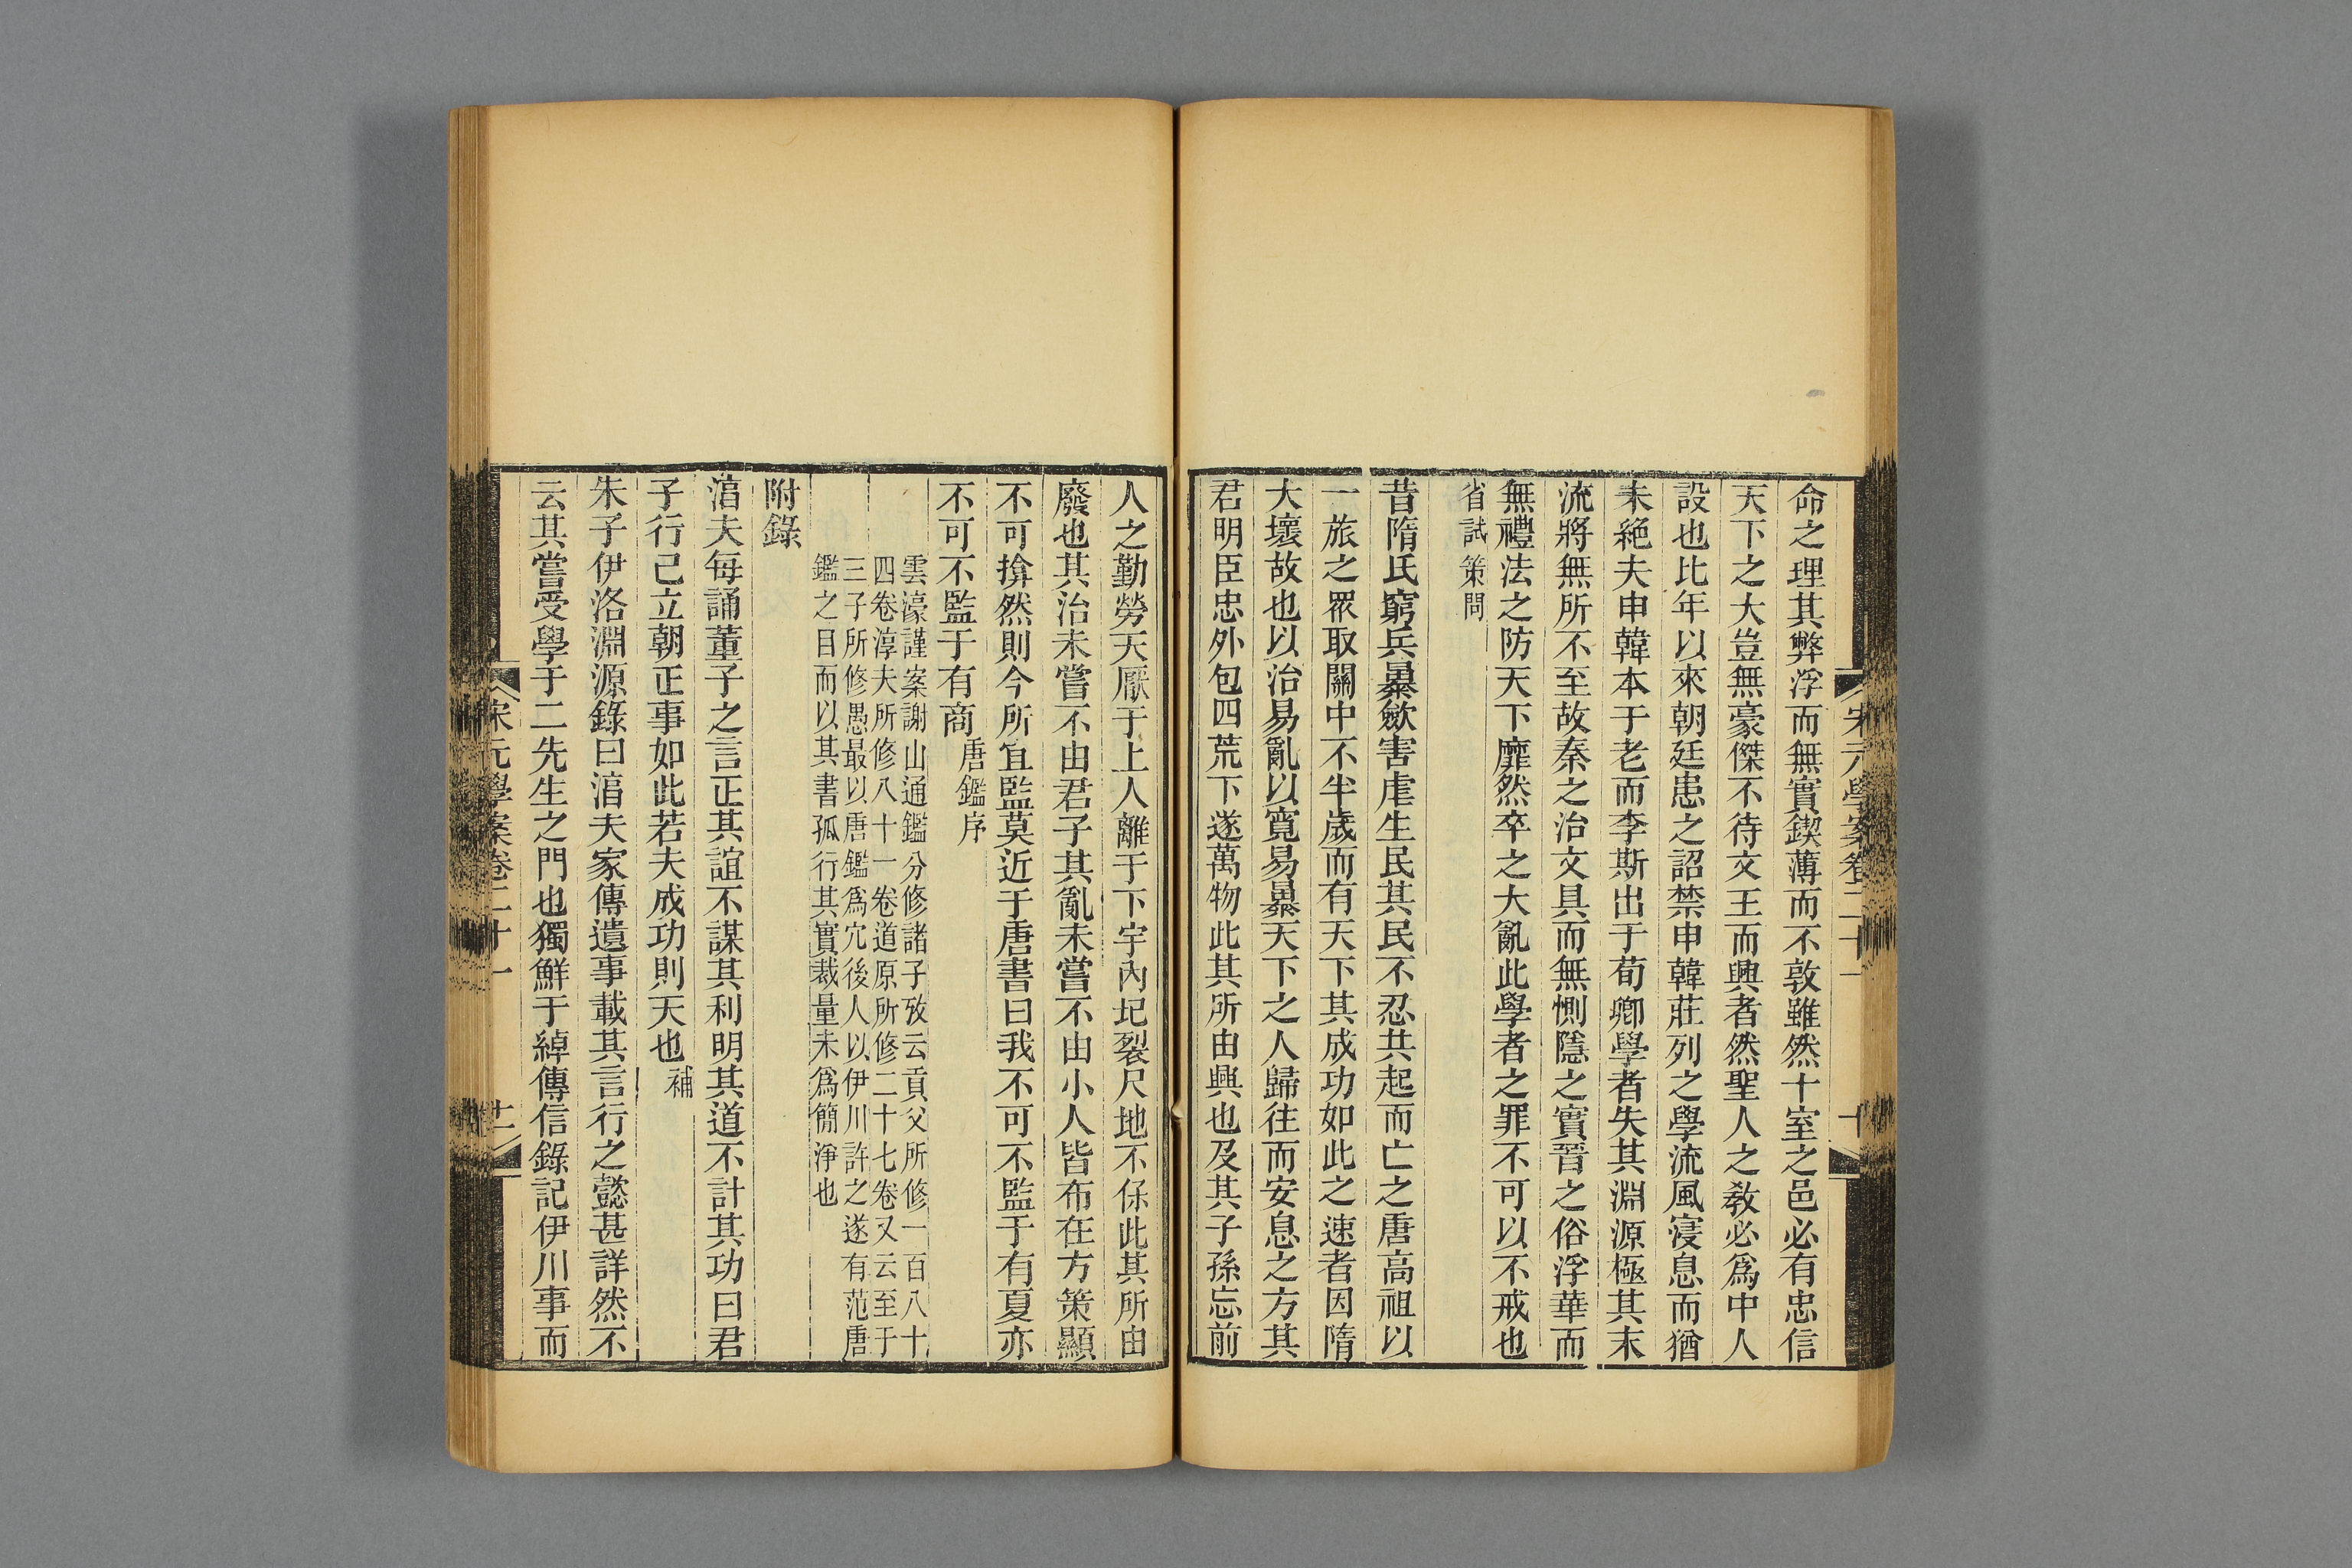 命之理其弊浮而無實鍥薄而不敦雖然十室之邑必有忠信
天下之大豈無豪傑不待文王而興者然聖人之教必爲中人
設也比年以來朝廷患之詔禁申韓莊列之學流風寖息而猶
未絕夫申韓本于老而李斯出于荀卿學者失其淵源極其末
流將無所不至故秦之治文具而無惻隱之實晉之俗浮華而
無禮法之防天下靡然卒之大亂此學者之罪不可以不戒也
省試策問
昔隋氏窮兵暴歛害虐生民其民不忍共起而亡之唐高祖以
一旅之眾取關中不半歲而有天下其成功如此之速者因隋
大壞故也以治易亂以寬易暴天下之人歸往而安息之方其
君明臣忠外包四荒下遂萬物此其所由興也及其子孫忘前
人之勤勞天厭于上人離于下宇內圮裂尺地不保此其所由
廢也其治未嘗不由君子其亂未嘗不由小人皆布在方策顯
不可揜然則今所宜監莫近于唐書曰我不可不監于有夏亦
不可不監于有商唐鑑序
雲濠謹案謝山通鑑分修諸子攷云貢父所修一百八十
四卷淳夫所修八十一卷道原所修二十七卷又云至于
三子所修愚最以唐鑑爲宂後人以伊川許之遂有范唐
鑑之目而以其書孤行其實裁量未爲簡淨也
附錄
湻夫每誦董子之言正其誼不謀其利明其道不計其功曰君
子行己立朝正事如此若夫成功則天也補
朱子伊洛淵源錄曰湻夫家傳遺事載其言行之懿甚詳然不
云其嘗受學于二先生之門也獨鮮于綽傳信錄記伊川事而
宋元學案卷二十一